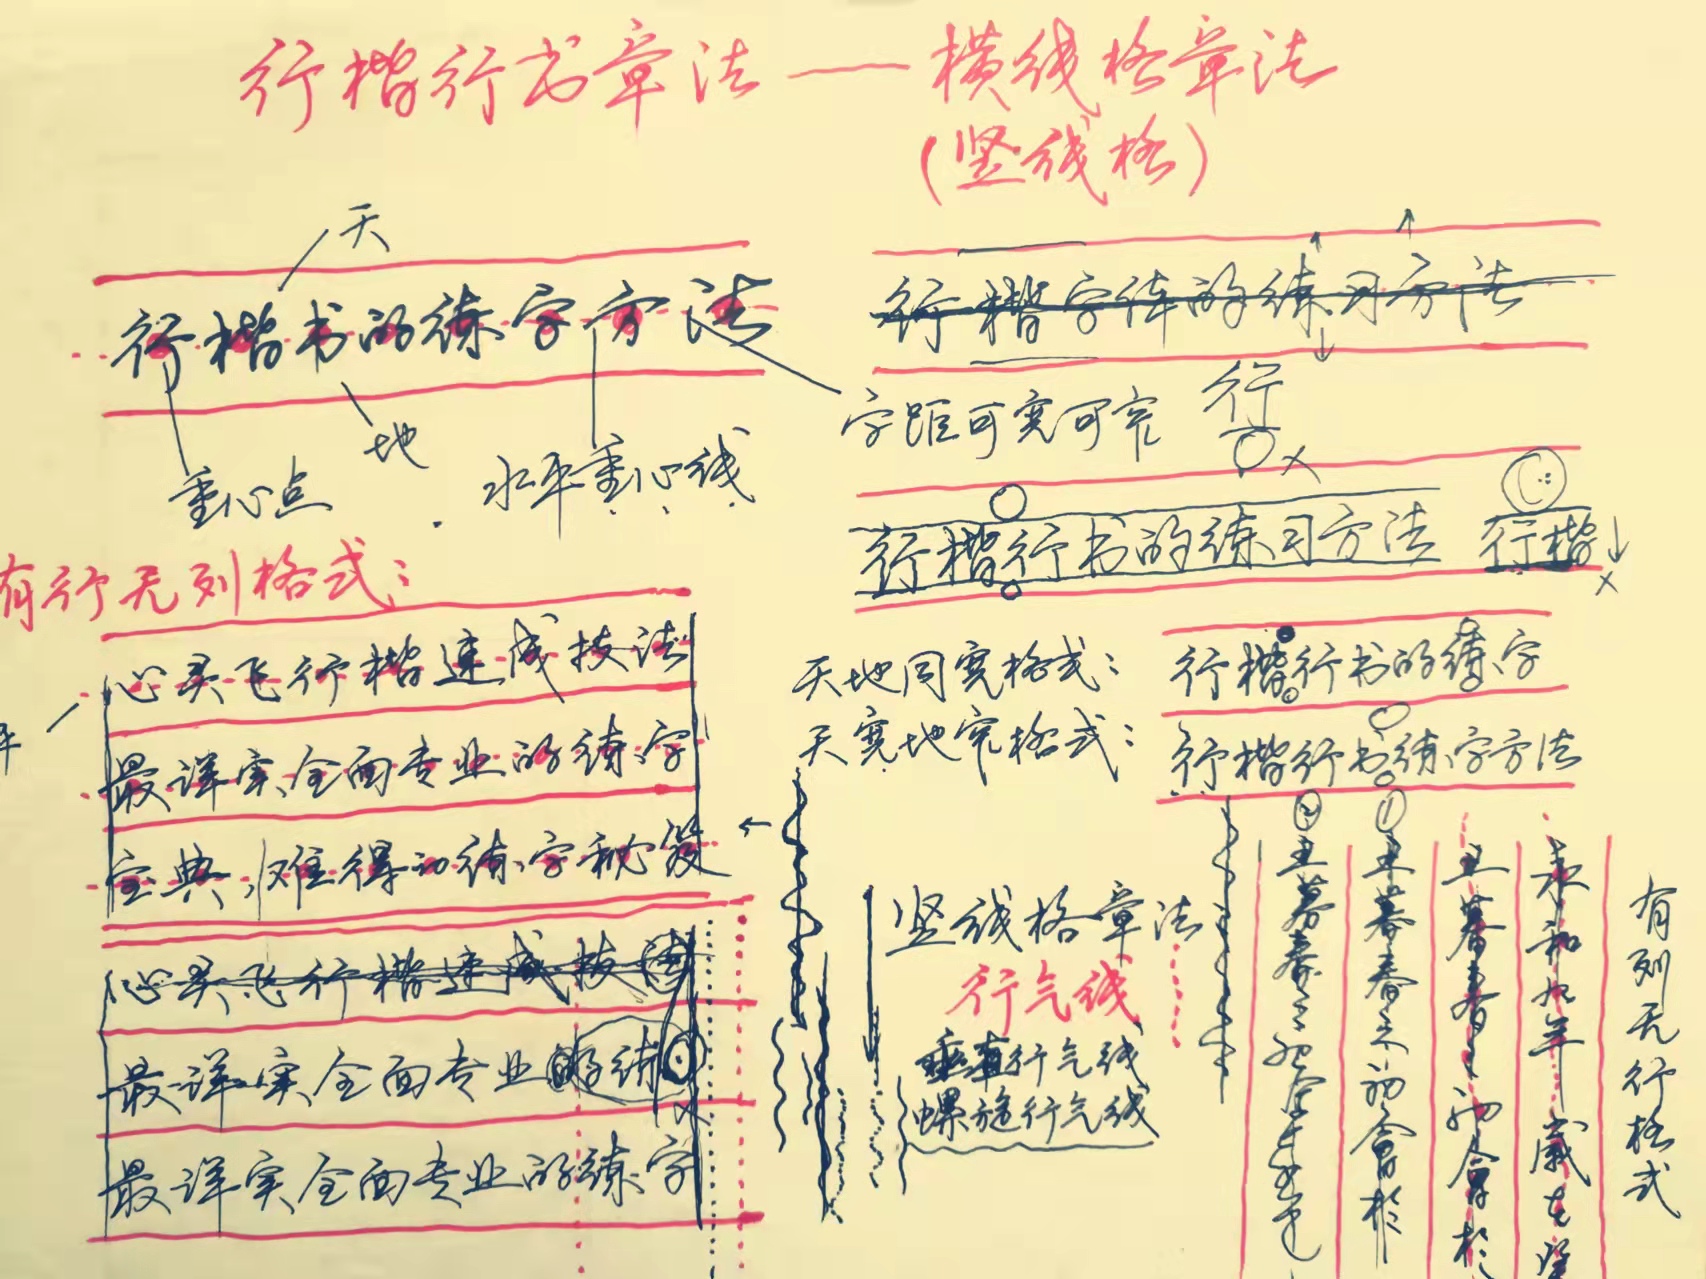 行楷行书章法——横线格章法
(竖线格)
天
行楷书的练字方法
地
重心点
水平重心线
行楷字体的练习方法
字距可宽可窄
行
×
行楷行书的练习方法
行楷
×
有行无列格式:
心灵飞行楷速成技法
最详实、全面专业的练字
宝典,难得的练字秘笈
心灵飞行楷速成技法
最详实、全面专业的练
×
最详实、全面专业的练字
天地同宽格式:
天宽地窄格式:
行楷行书的练字
行楷行书练字方法
竖线格章法
行气线
垂直行气线
螺旋行气线
有列无行格式
永和九年岁在
暮春之初会于
① 暮春之初会于
② 暮春之初